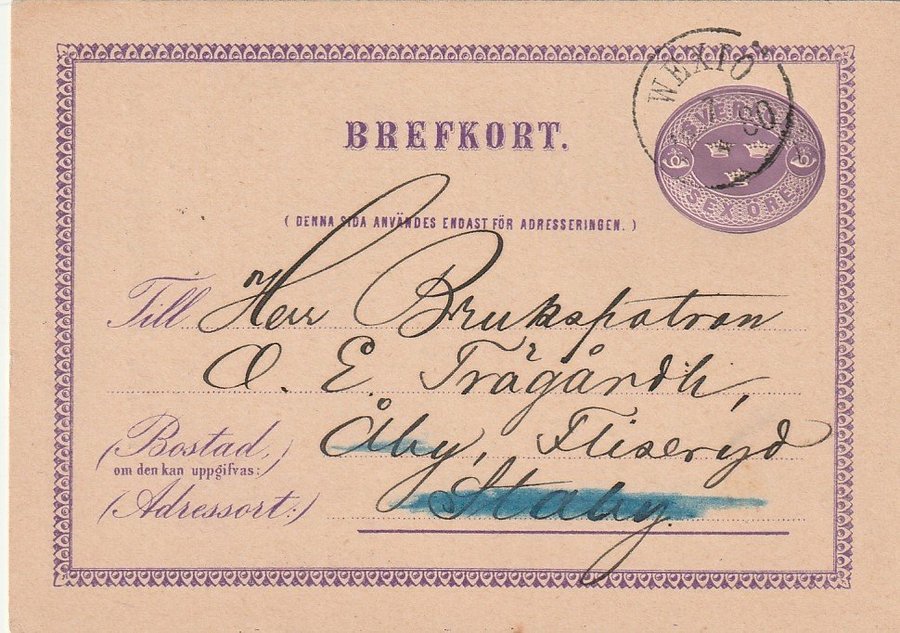 WEXIÖ
7
80
SVERIGE
SEX ÖRE
BREFKORT.
( DENNA SIDA ANVÄNDES ENDAST FÖR ADRESSERINGEN. )
Till Herr Brukspatron
O. E. Trägårdh,
(Bostad,) Åby, Fliseryd
om den kan uppgifvas:
(Adressort:) Staby.